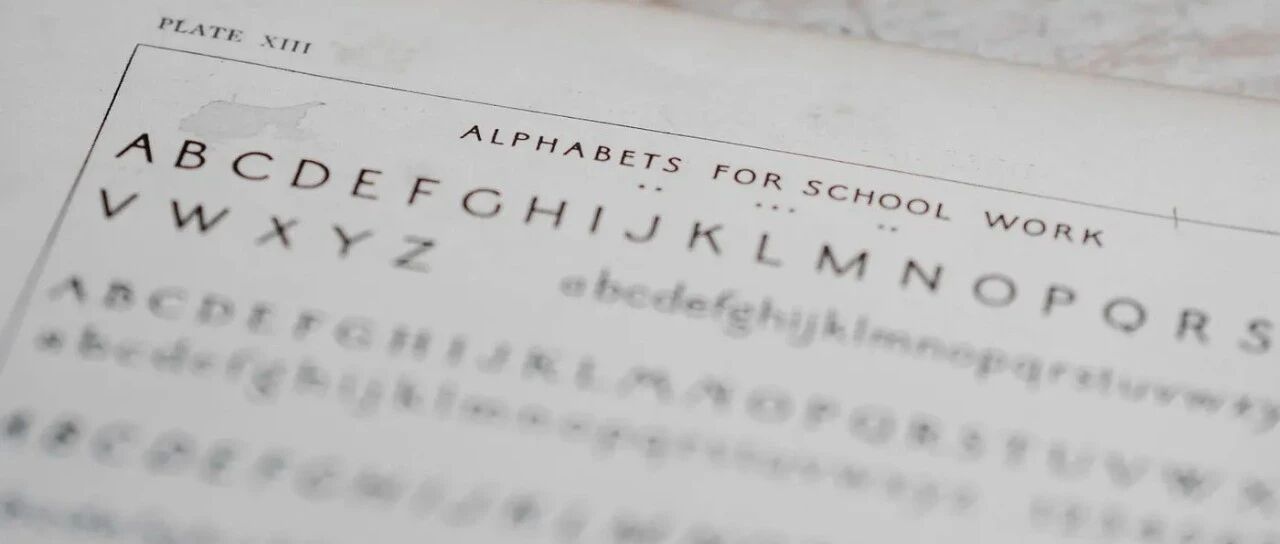 PLATE XIII
ALPHABETS FOR SCHOOL WORK
A B C D E F G H I J K L M N O P Q R S
V W X Y Z
abcdefghijklmnopqrstuvwxy
A B C D E F G H I J K L M N O P Q R S T U V W X
abcdefghijklmnopqrstuvwxyz